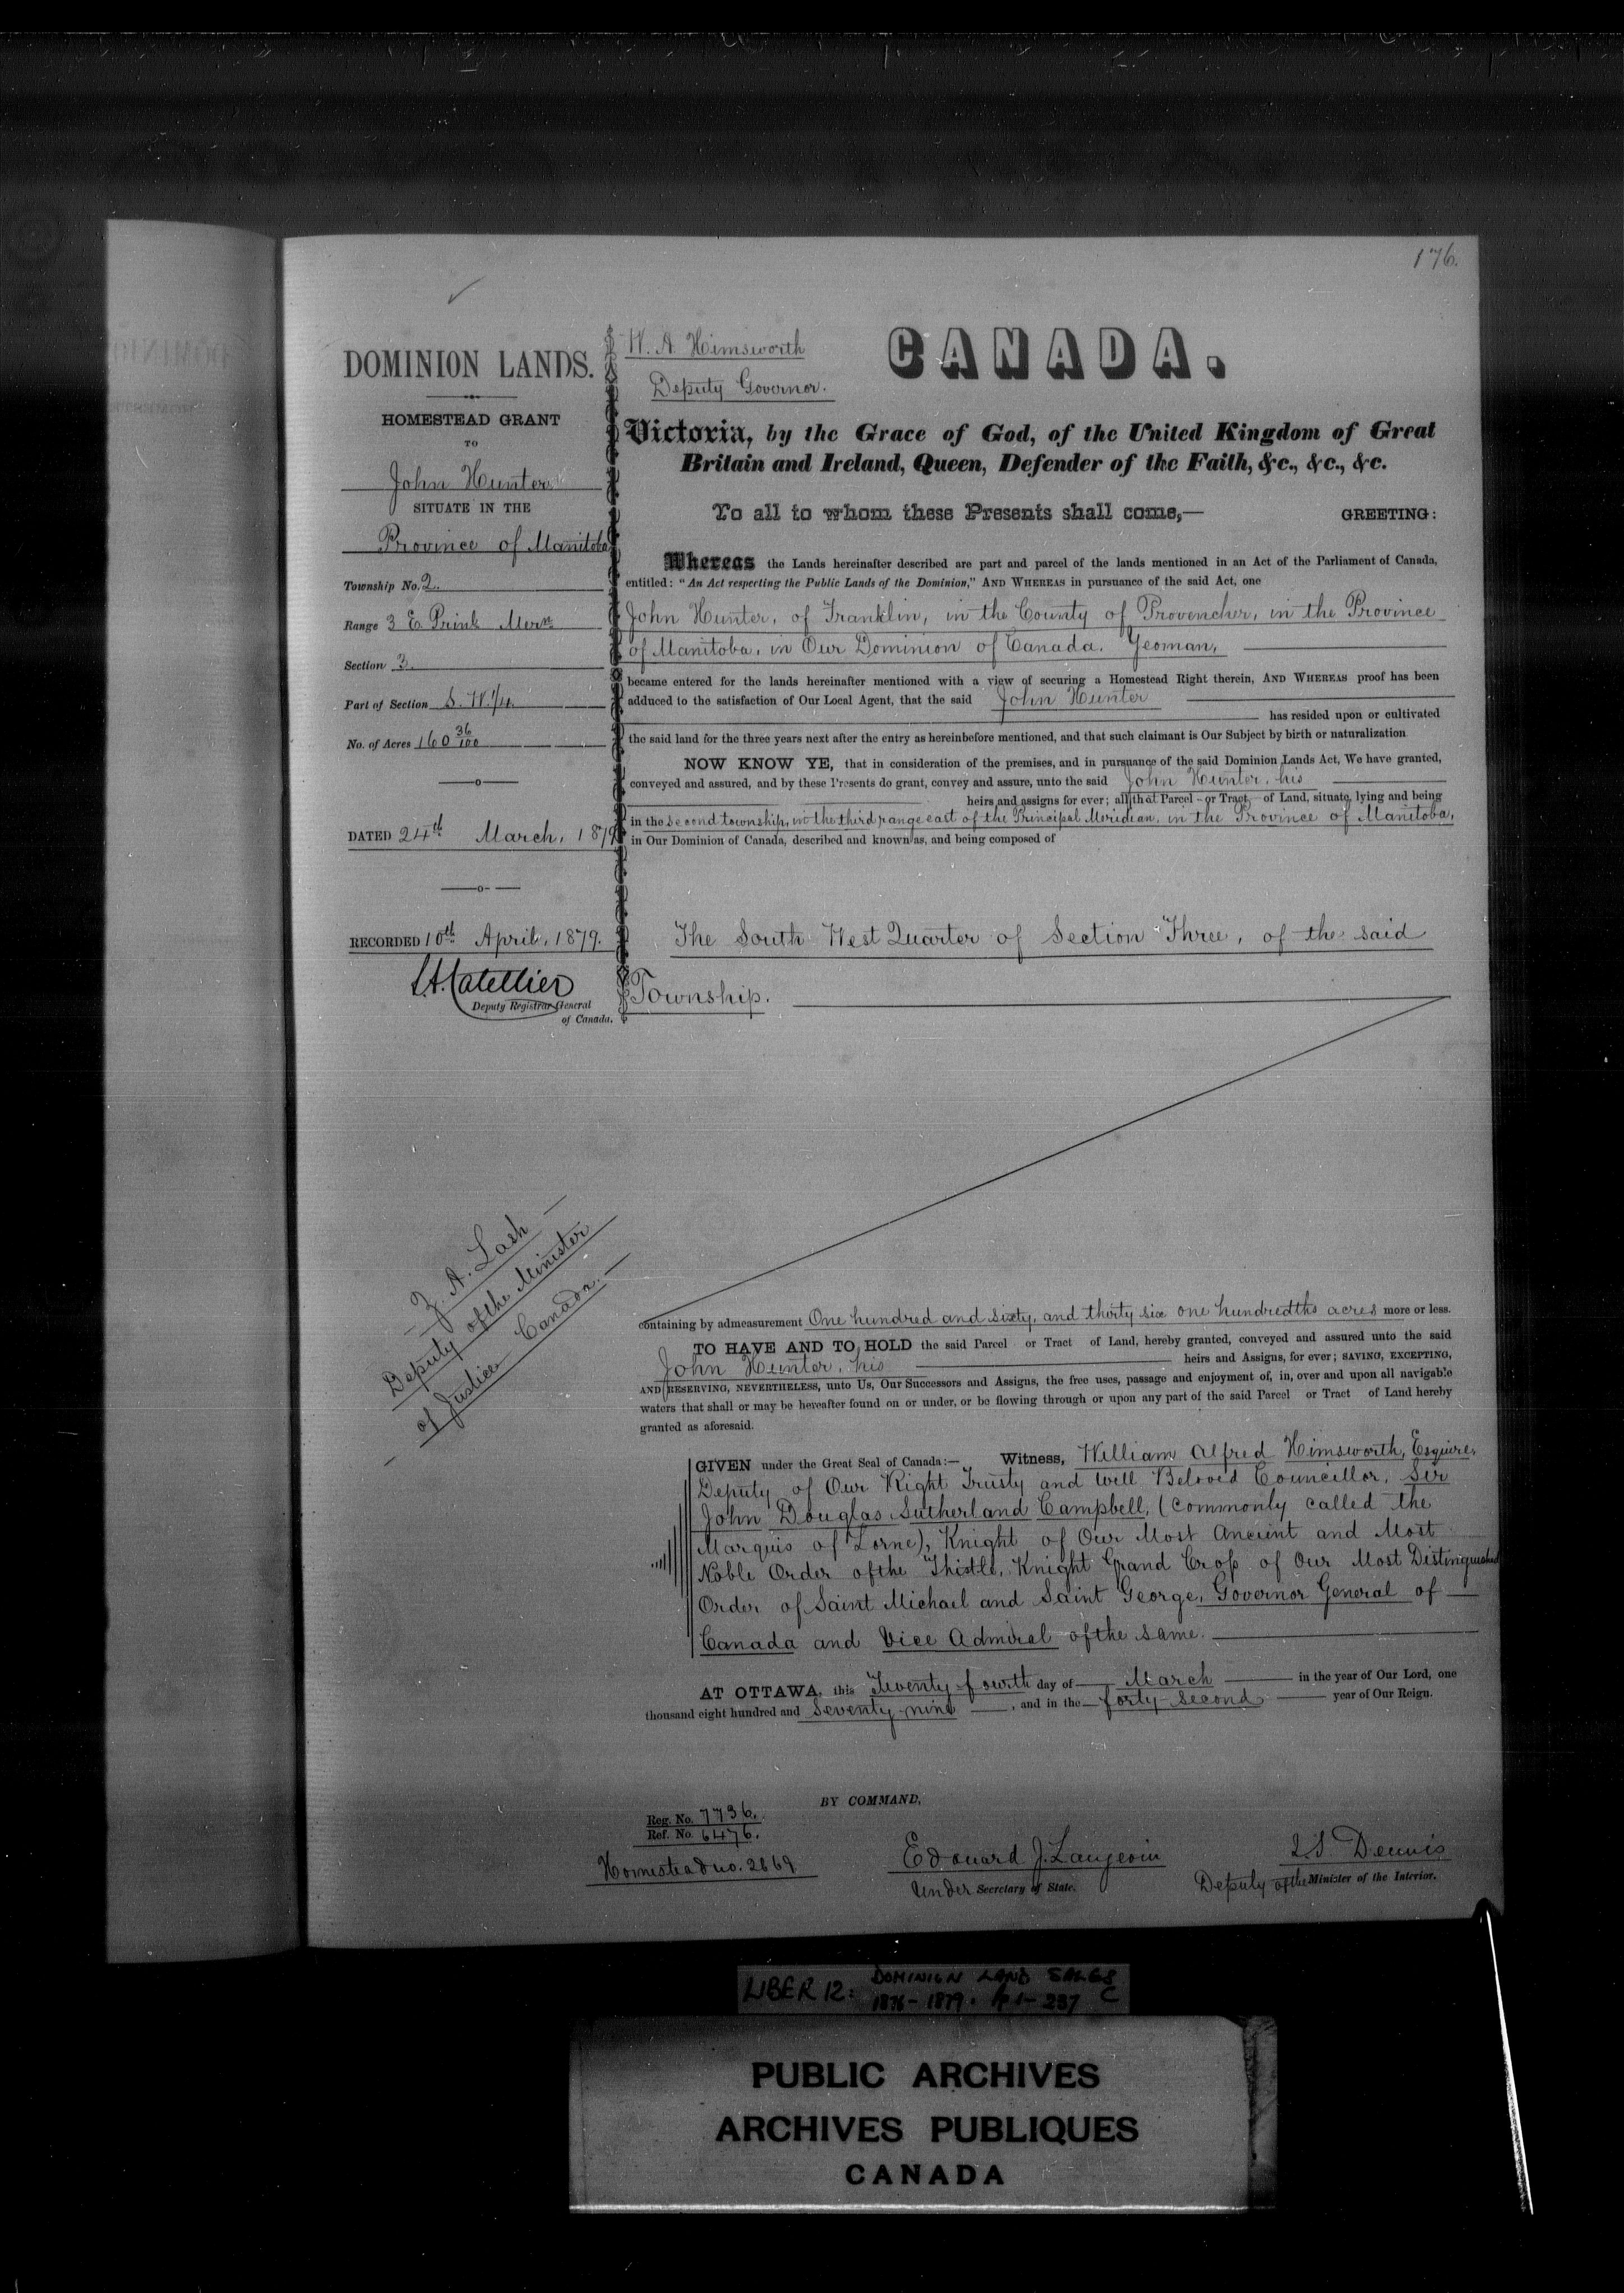 176.
DOMINION LANDS.
HOMESTEAD GRANT
TO
John Hunter
SITUATE IN THE
Province of Manitoba
Township No. 2.
Range 3 E. Prinl. Mern
Section 3.
Part of Section S. W. 1/4.
No. of Acres 160 36/100
DATED 24th March, 1879
RECORDED 10th April, 1879.
L.A. Catellier
Deputy Registrar General
of Canada.
Z. A. Lash
Deputy of the Minister
of Justice Canada.
W. A. Himsworth
Deputy Governor.
CANADA.
Victoria, by the Grace of God, of the United Kingdom of Great
Britain and Ireland, Queen, Defender of the Faith, &c., &c., &c.
To all to whom these Presents shall come,— GREETING:
Whereas the Lands hereinafter described are part and parcel of the lands mentioned in an Act of the Parliament of Canada,
entitled: "An Act respecting the Public Lands of the Dominion," AND WHEREAS in pursuance of the said Act, one
John Hunter, of Franklin, in the County of Provencher, in the Province
of Manitoba, in Our Dominion of Canada. Yeoman,
became entered for the lands hereinafter mentioned with a view of securing a Homestead Right therein, AND WHEREAS proof has been
adduced to the satisfaction of Our Local Agent, that the said John Hunter
has resided upon or cultivated
the said land for the three years next after the entry as hereinbefore mentioned, and that such claimant is Our Subject by birth or naturalization
NOW KNOW YE, that in consideration of the premises, and in pursuance of the said Dominion Lands Act, We have granted,
conveyed and assured, and by these Presents do grant, convey and assure, unto the said John Hunter, his
heirs and assigns for ever; all that Parcel or Tract of Land, situate, lying and being
in the second township, in the third range east of the Principal Meridian, in the Province of Manitoba,
in Our Dominion of Canada, described and known as, and being composed of
The South West Quarter of Section Three, of the said
Township.
containing by admeasurement One hundred and sixty, and thirty six one hundredths acres more or less.
TO HAVE AND TO HOLD the said Parcel or Tract of Land, hereby granted, conveyed and assured unto the said
John Hunter, his heirs and Assigns, for ever; SAVING, EXCEPTING,
AND RESERVING, NEVERTHELESS, unto Us, Our Successors and Assigns, the free uses, passage and enjoyment of, in, over and upon all navigable
waters that shall or may be hereafter found on or under, or be flowing through or upon any part of the said Parcel or Tract of Land hereby
granted as aforesaid.
GIVEN under the Great Seal of Canada:— Witness, William Alfred Himsworth, Esquire,
Deputy of Our Right Trusty and Well Beloved Councillor, Sir
John Douglas Sutherland Campbell, (commonly called the
Marquis of Lorne), Knight of Our Most Ancient and Most
Noble Order of the Thistle, Knight Grand Cross of Our Most Distinguished
Order of Saint Michael and Saint George, Governor General of
Canada and Vice Admiral of the same.
AT OTTAWA, this Twenty fourth day of March in the year of Our Lord, one
thousand eight hundred and seventy-nine, and in the forty-second year of Our Reign.
BY COMMAND,
Reg. No. 7736.
Ref. No. 6476.
Homestead no. 2669
Edouard J. Langevin
Under Secretary of State.
J S Dennis
Deputy of the Minister of the Interior.
LIBER 12: DOMINION LAND SALES
1876-1879. pp 1-287 C
PUBLIC ARCHIVES
ARCHIVES PUBLIQUES
CANADA